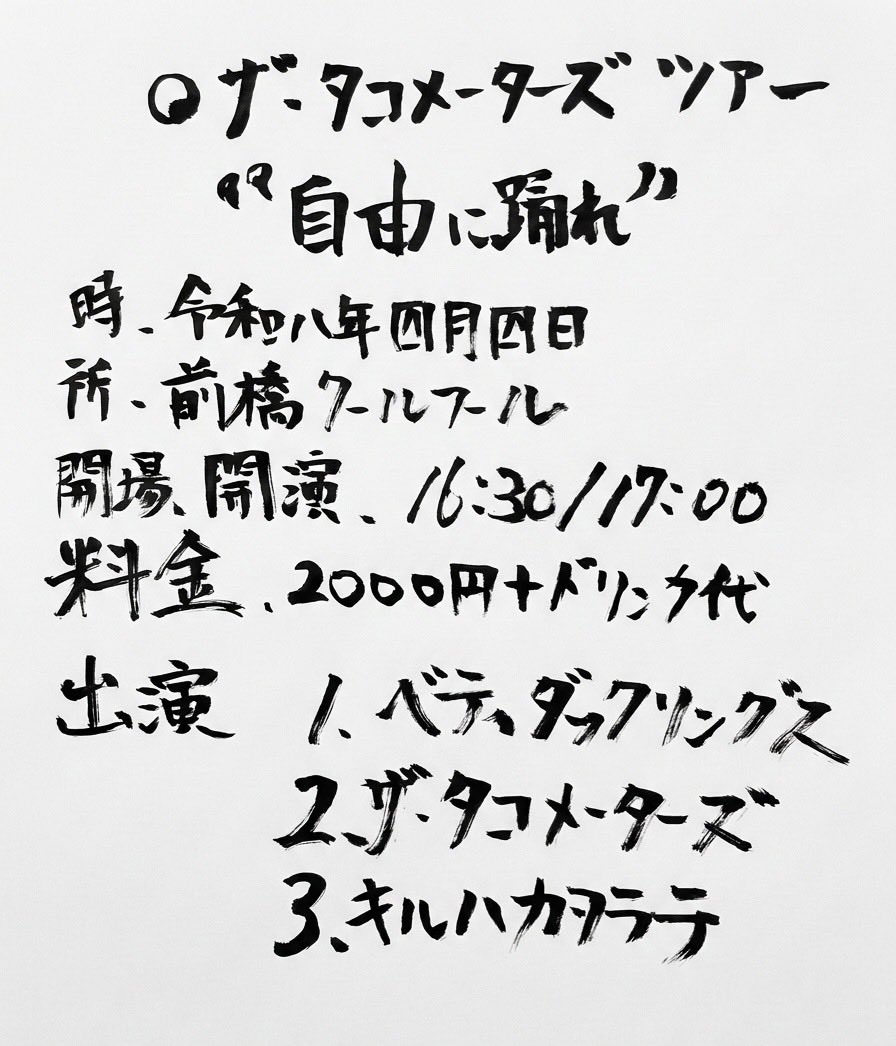 ○ザ・タコメーターズ ツアー
“自由に踊れ”
時、令和八年四月四日
所、前橋クールフール
開場、開演、16:30/17:00
料金、2000円+ドリンク代
出演 1、ベティ、ダックリングス
2、ザ・タコメーターズ
3、キルハカヲラテ